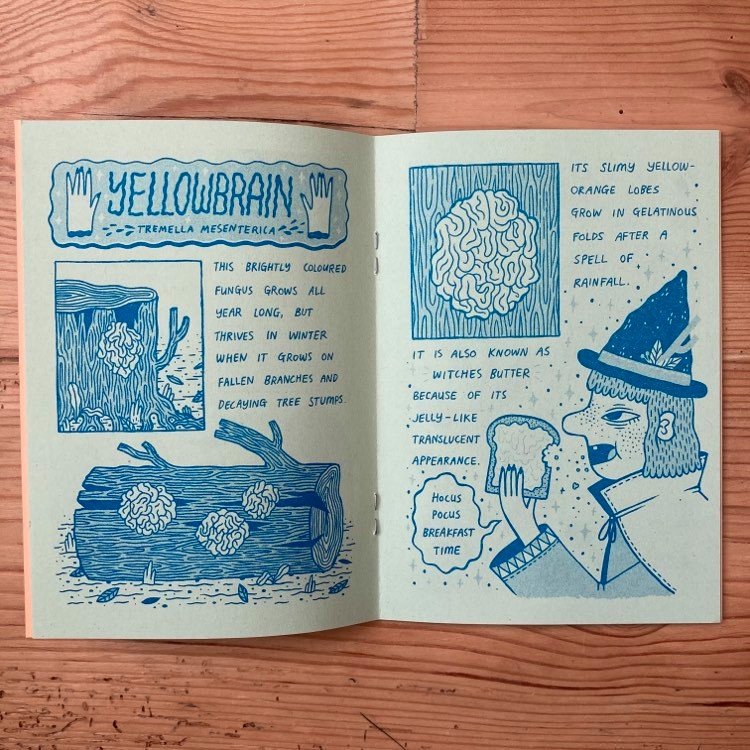 YELLOWBRAIN
TREMELLA MESENTERICA
THIS BRIGHTLY COLOURED
FUNGUS GROWS ALL
YEAR LONG, BUT
THRIVES IN WINTER
WHEN IT GROWS ON
FALLEN BRANCHES AND
DECAYING TREE STUMPS.
ITS SLIMY YELLOW-
ORANGE LOBES
GROW IN GELATINOUS
FOLDS AFTER A
SPELL OF
RAINFALL.
IT IS ALSO KNOWN AS
WITCHES BUTTER
BECAUSE OF ITS
JELLY-LIKE
TRANSLUCENT
APPEARANCE.
HOCUS
POCUS
BREAKFAST
TIME